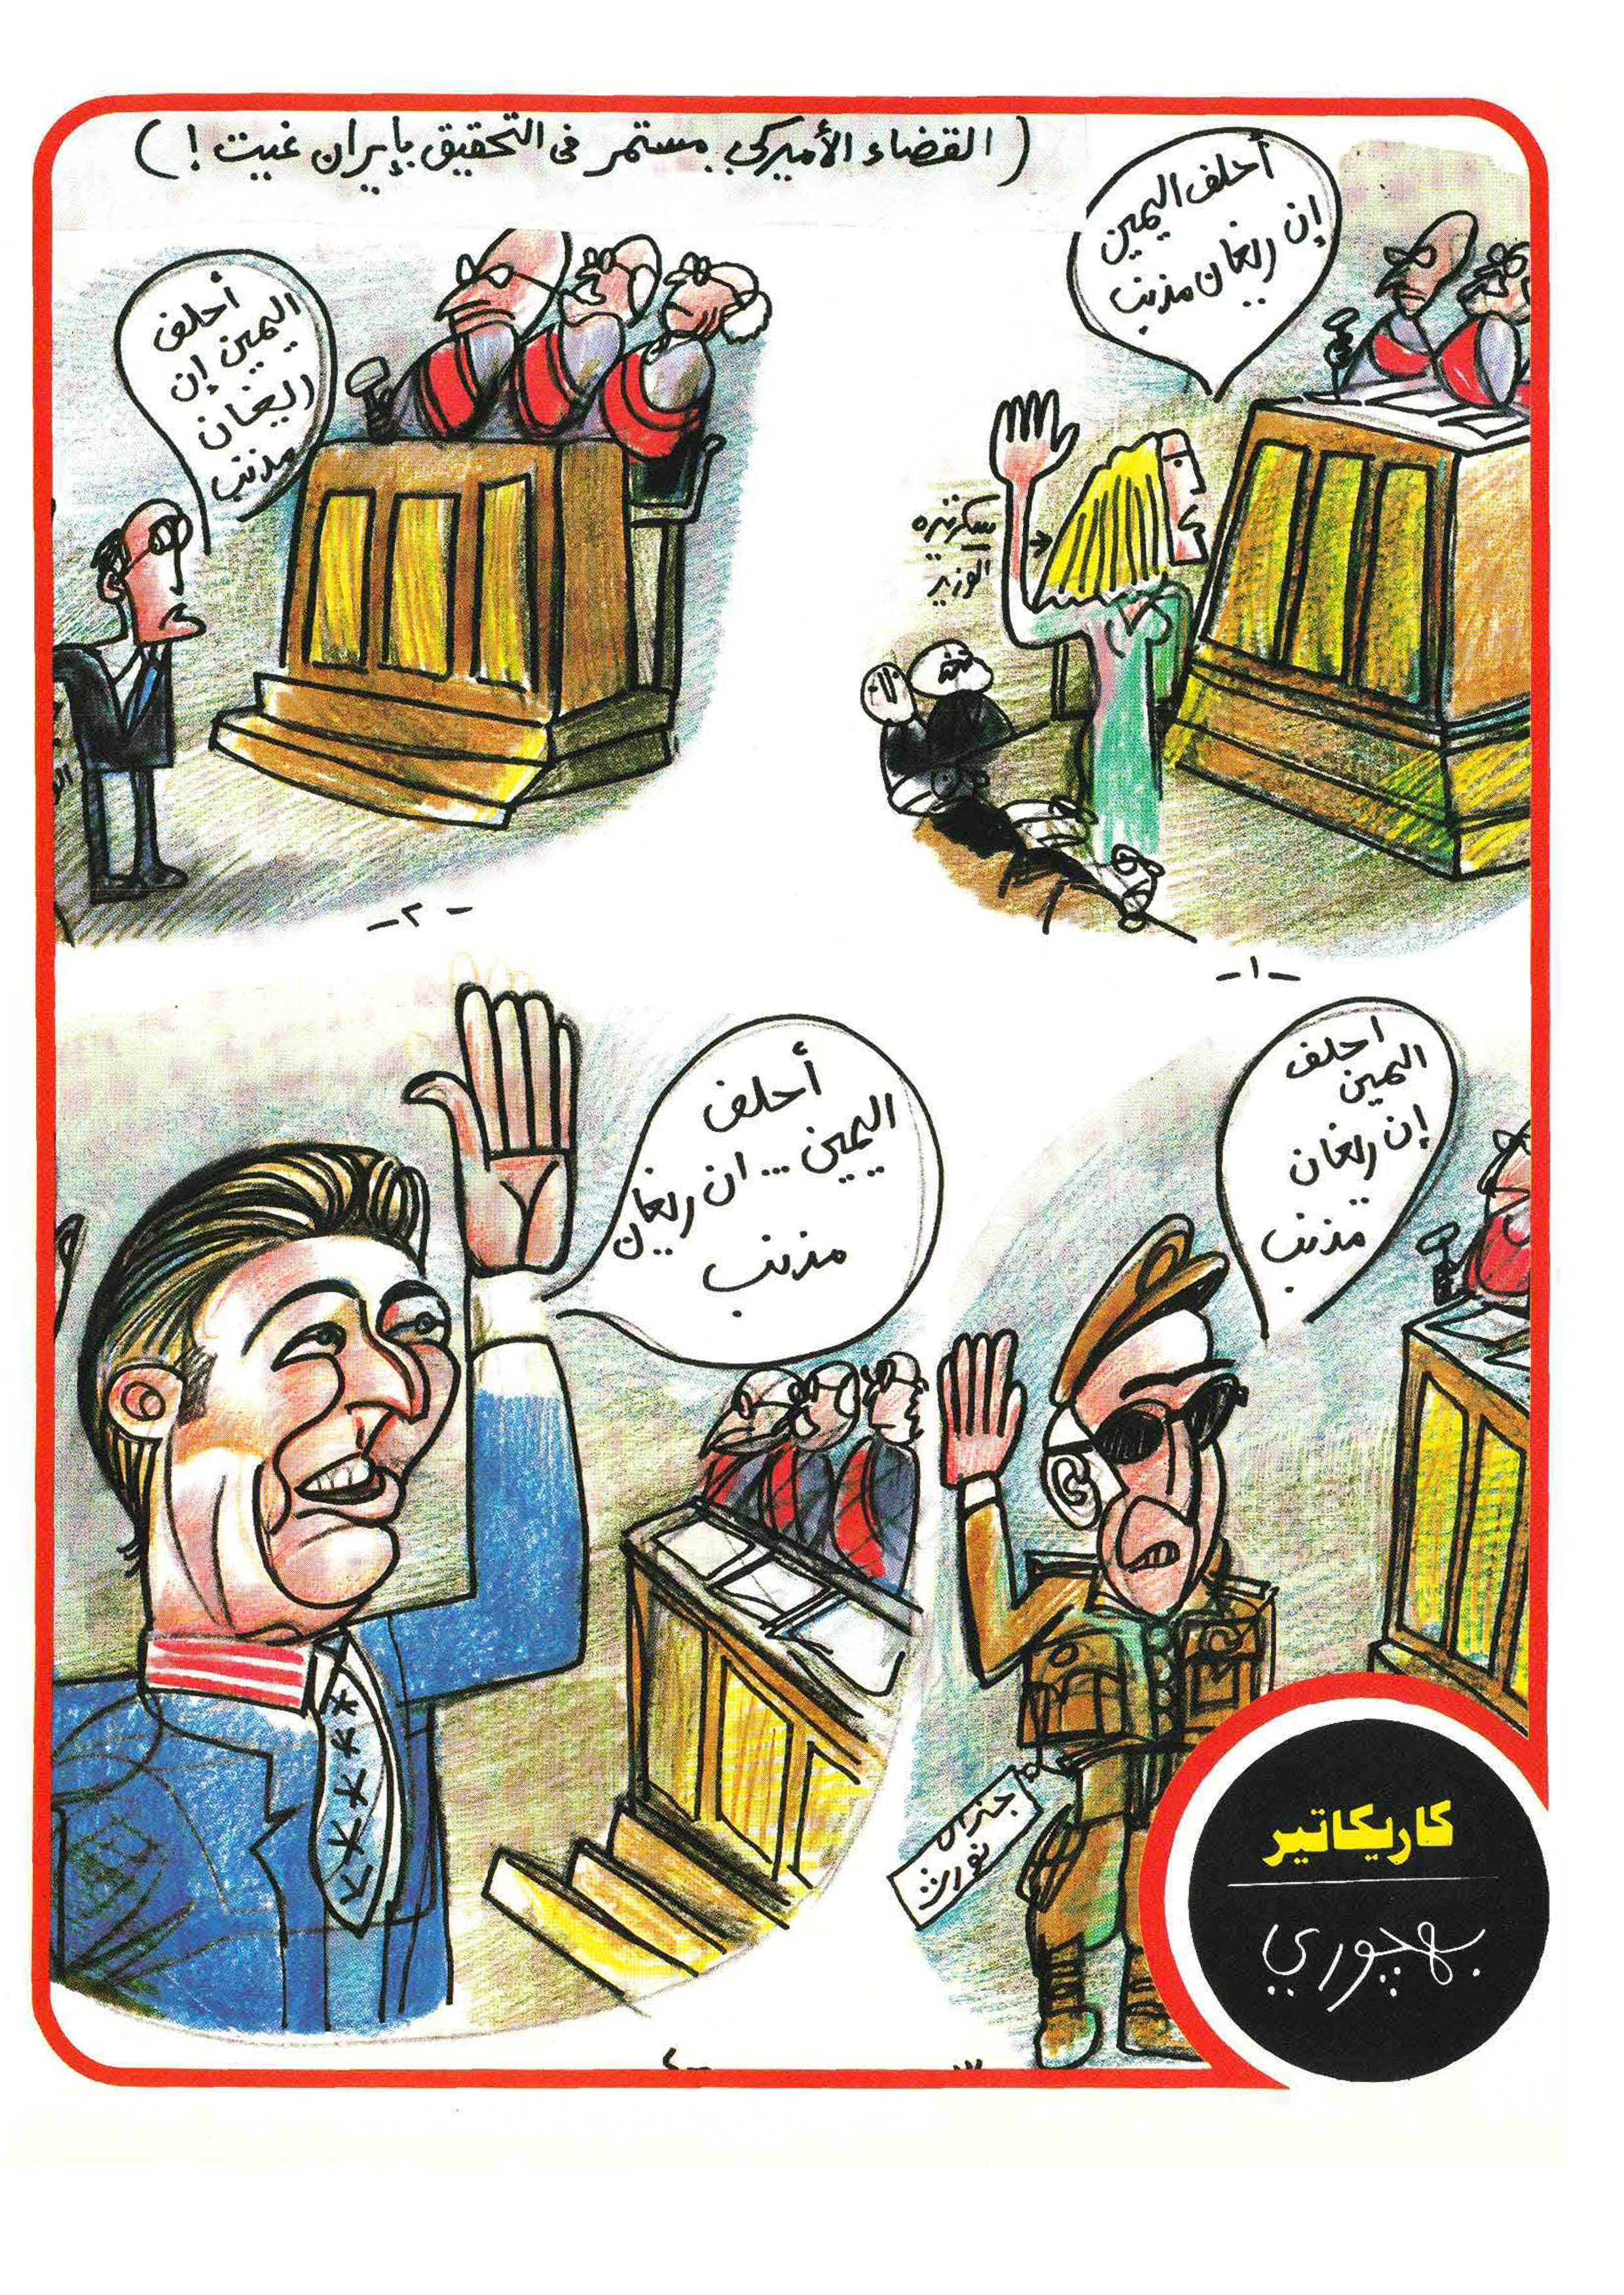 ( القضاء الأميركي مستمر في التحقيق بإيران غيت ! )
أحلف اليمين
إن ريغان مذنب
سكرتيرة
الوزير
-١-
أحلف
اليمين إن
ريغان
مذنب
-٢-
احلف
اليمين
إن ريغان
مذنب
جنرال
نورث
أحلف
اليمين ... ان ريغان
مذنب
كاريكاتير
بهجوري